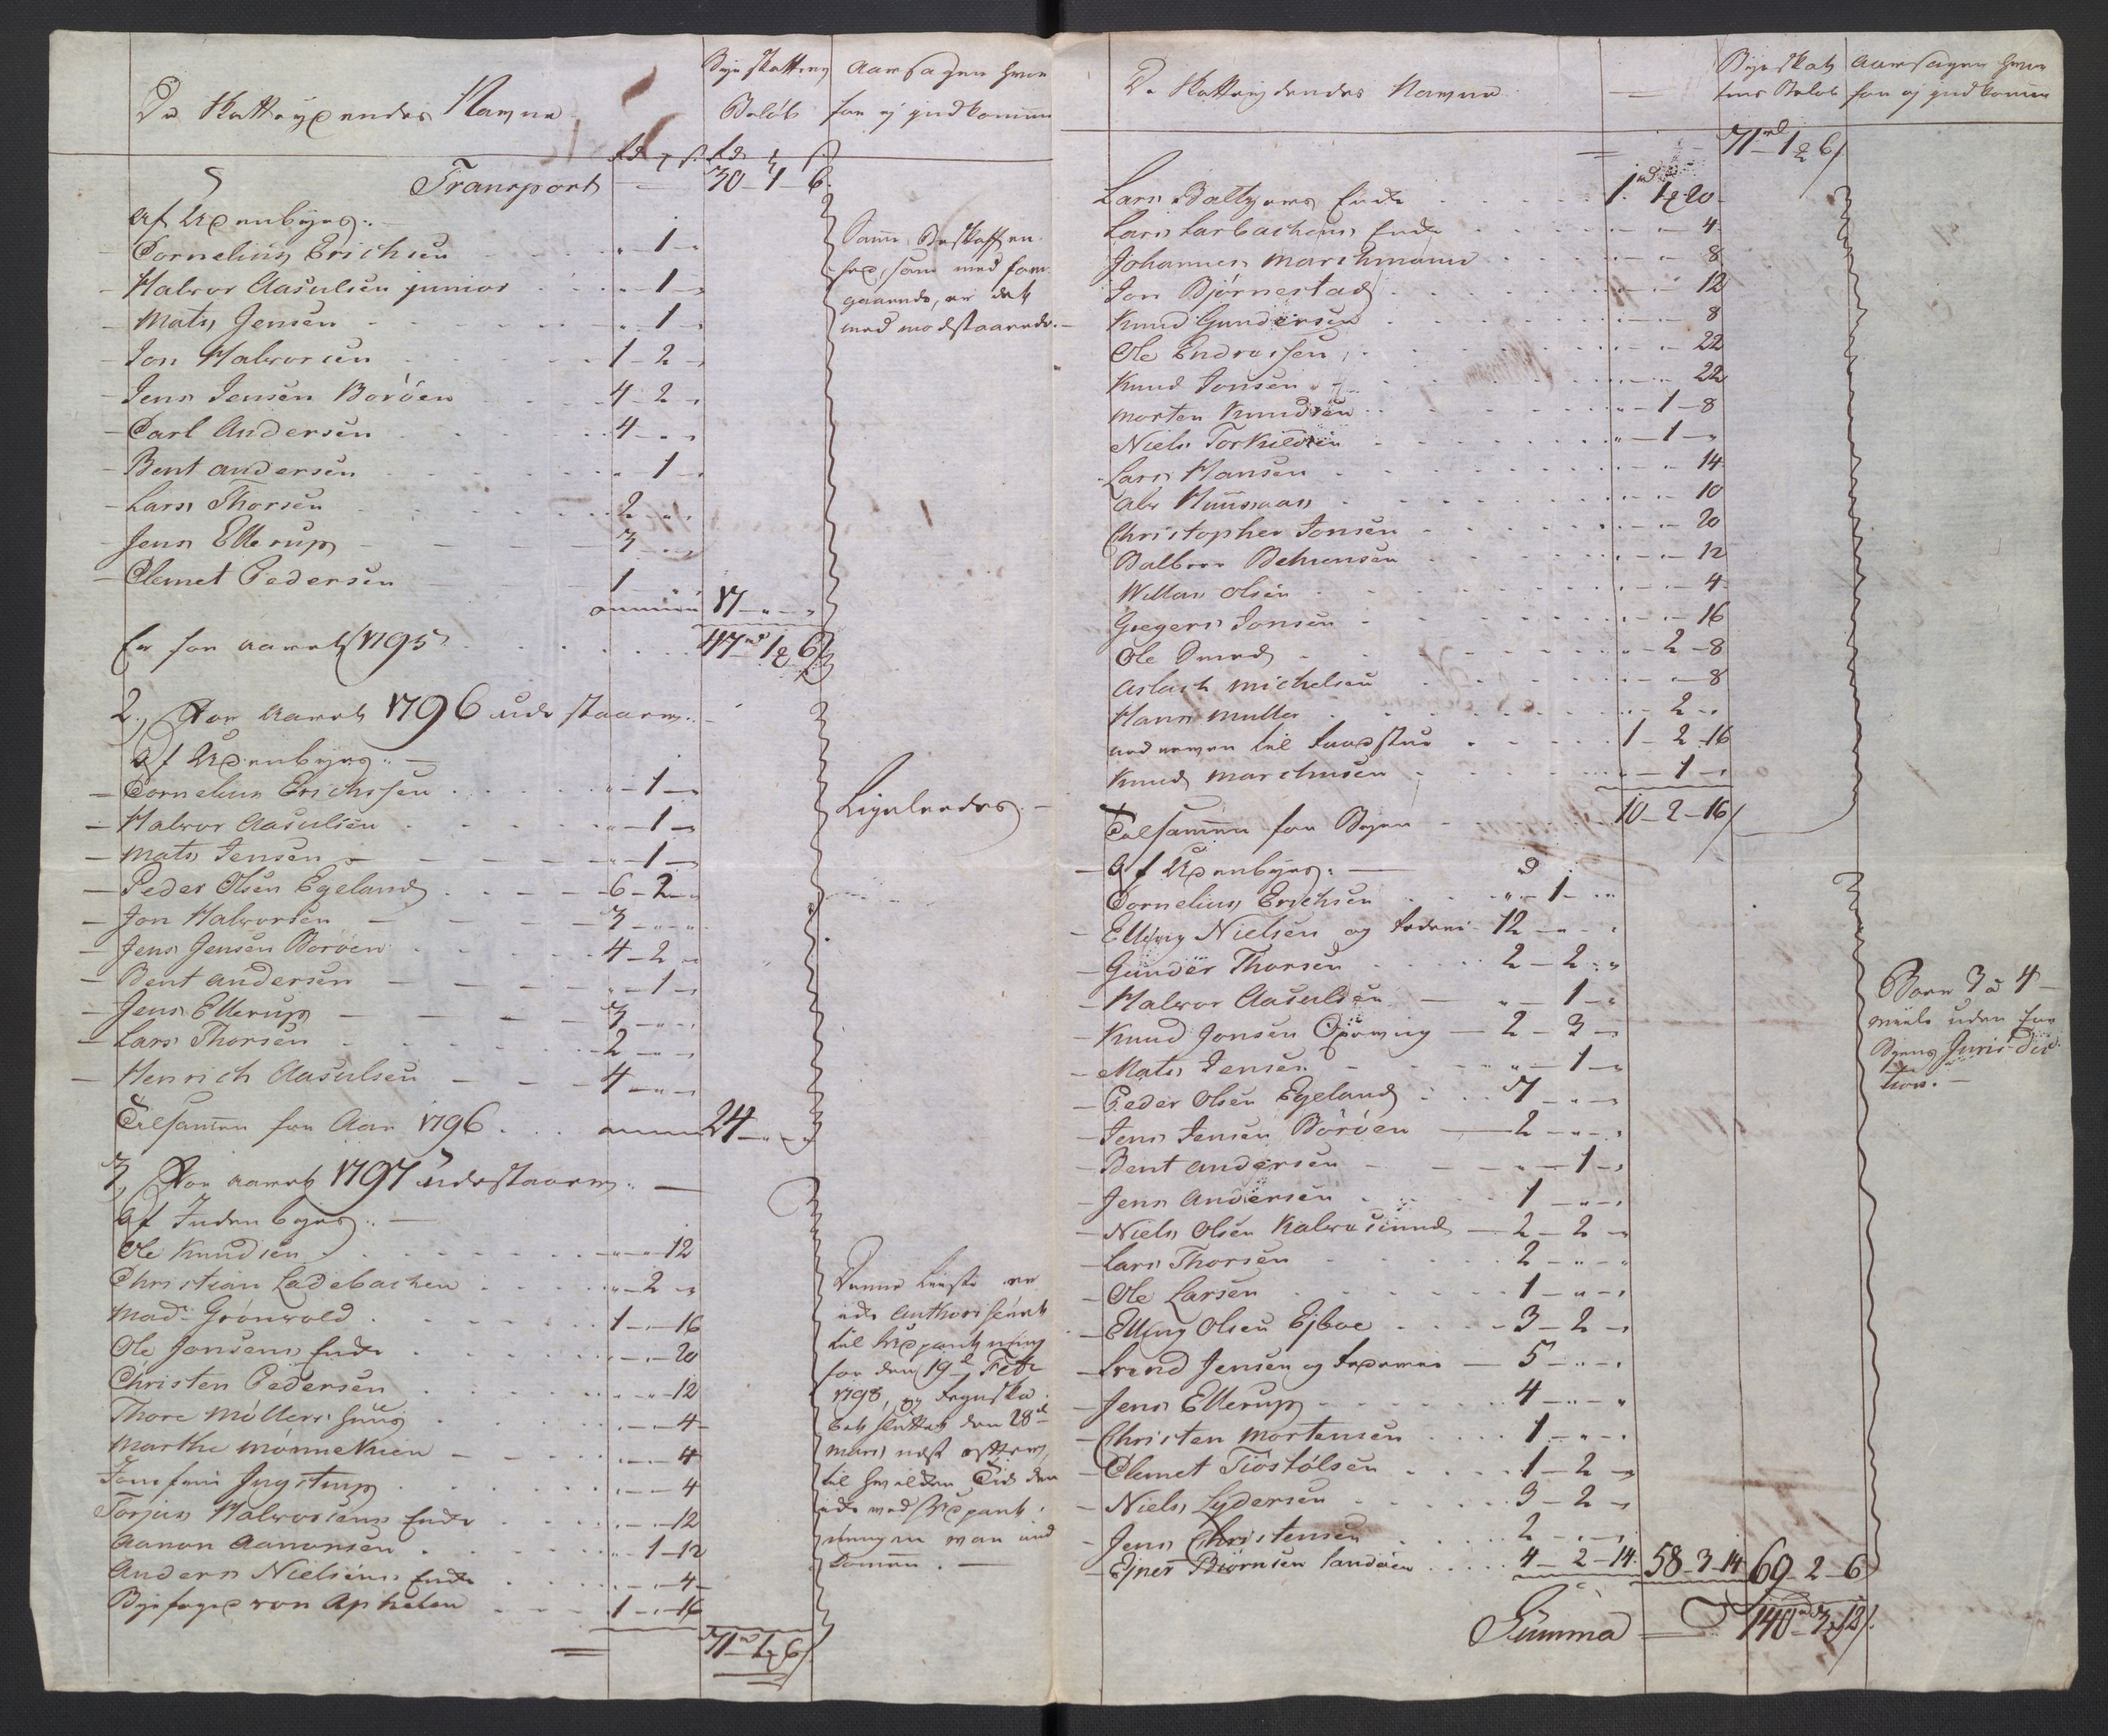 De Skatteydendes Navne
Bye Skattens
Beløb
Aarsagen hvor
for ej indkommen
Rd ß Rd ß
Transport 30-1-6
Af Udenbyes:
Cornelius Erichsen " 1 "
Halvor Aasulsen junior " 1 "
Mats Jensen " 1 "
Jon Halvorsen 1-2-"
Jens Jensen Borøen 4-2-"
Carl Andersen 4-"-"
Bent Andersen " 1-"
Lars Thorsen 2-"-"
Jens Ellerup 3-"-"
Clemet Pedersen 1-"-"
17-"-"
Samme Beskaffen
hed, som med for
gaaende, er det
med modstaaende.
Er for Aaret 1795 47rd 1 6
2, For Aaret 1796 udestaar:
Af Udenbyes:
Cornelius Erichsen "-1-"
Halvor Aasulsen "-1-"
Mats Jensen "-1-"
Peder Olsen Egeland 6-2-"
Jon Halvorsen 3-"-"
Jens Jensen Borøen 4-2-"
Bent Andersen "-1-"
Jens Ellerup 3-"-"
Lars Thorsen 2-"-"
Henrich Aasulsen 4-"-"
Ligeledes.
Tilsamen for Aar 1796 24-"-"
3, For Aaret 1797 udestaar:
Af Indenbyes:
Ole Knudsen "-"-12
Christian Ladebachen "-2-"
Mad. Grønvold 1-"-16
Ole Jonsens Enke "-"-20
Christen Pedersen "-"-12
Thore Møllers Huus "-"-4
Marthe Mønnekien "-"-4
Jomfrue Jugstrup "-"-4
Torjus Halvorsens Enke "-"-12
Aanon Aanonsen "-1-12
Anders Nielsens Enke "-"-4
Byefoged von Aphelen 1-"-16
71rd 1 6
Denne Liste er
ikke Authoriseret
til Udpantning
før den 19de Febr
1798, og Regnska
bet sluttet den 28de
Marts næst efter,
til hvilken Tid den
ikke ved Udpant
ningen var ind
kommen.
De Skatteydendes Navne
Bye Skat
tens Beløb
Aarsagen hvor
for ej indkommen
71rd 1 6
Lars Baltzers Enke 1rd 1 20
Lars Larbachens Enke "-"-4
Johannes Marchmann "-"-8
Jon Bjørnestad "-"-12
Knud Gundersen "-"-8
Ole Endresen "-"-22
Knud Jonsen "-"-22
Morten Knudsen "-1-8
Niels Torkildsen "-1-"
Lars Hansen "-"-14
Abr Huusmaas "-"-10
Christopher Jonsen "-"-20
Balbroe Behrensen "-"-12
Willas Olsen "-"-4
Gregers Jonsen "-"-16
Ole Smed "-2-8
Aslach Michelsen "-"-8
Hans Muller "-2-"
til Raadstue 1-2-16
Knud Marchusen "-1-"
Tilsamen for Byen 10-2-16
Af Udenbyes:
Cornelius Erichsen "-1-"
Elling Nielsen og Rederi 12-"-"
Gunder Thorsen 2-2-"
Halvor Aasulsen "-1-"
Knud Jonsen Gjerving 2-3-"
Mats Jensen "-1-"
Peder Olsen Egeland 7-"-"
Jens Jensen Børøen 2-"-"
Bent Andersen "-1-"
Jens Andersen 1-"-"
Niels Olsen Kalvesund 2-2-"
Lars Thorsen 2-"-"
Ole Larsen 1-"-"
Elling Olsen Ejboe 3-2-"
Trond Jensen og Rederie 5-"-"
Jens Ellerup 4-"-"
Christen Mortensen 1-"-"
Clemet Tiostølsen 1-2-"
Niels Lydersen 3-2-"
Jens Christensen 2-"-"
Ejner Biørnsen Sandøen 4-2-14 58-3-14 69-2-6
Boer 3 à 4
Miile uden for
Byens Jurisdic
tion.
Summa 140rd 3 12